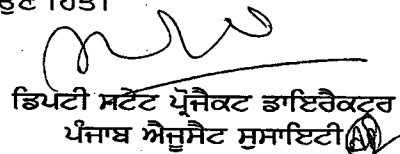 ਹਿਤ।
ਡਿਪਟੀ ਸਟੇਟ ਪ੍ਰੋਜੈਕਟ ਡਾਇਰੈਕਟਰ
ਪੰਜਾਬ ਐਜੂਸੈਟ ਸੁਸਾਇਟੀ